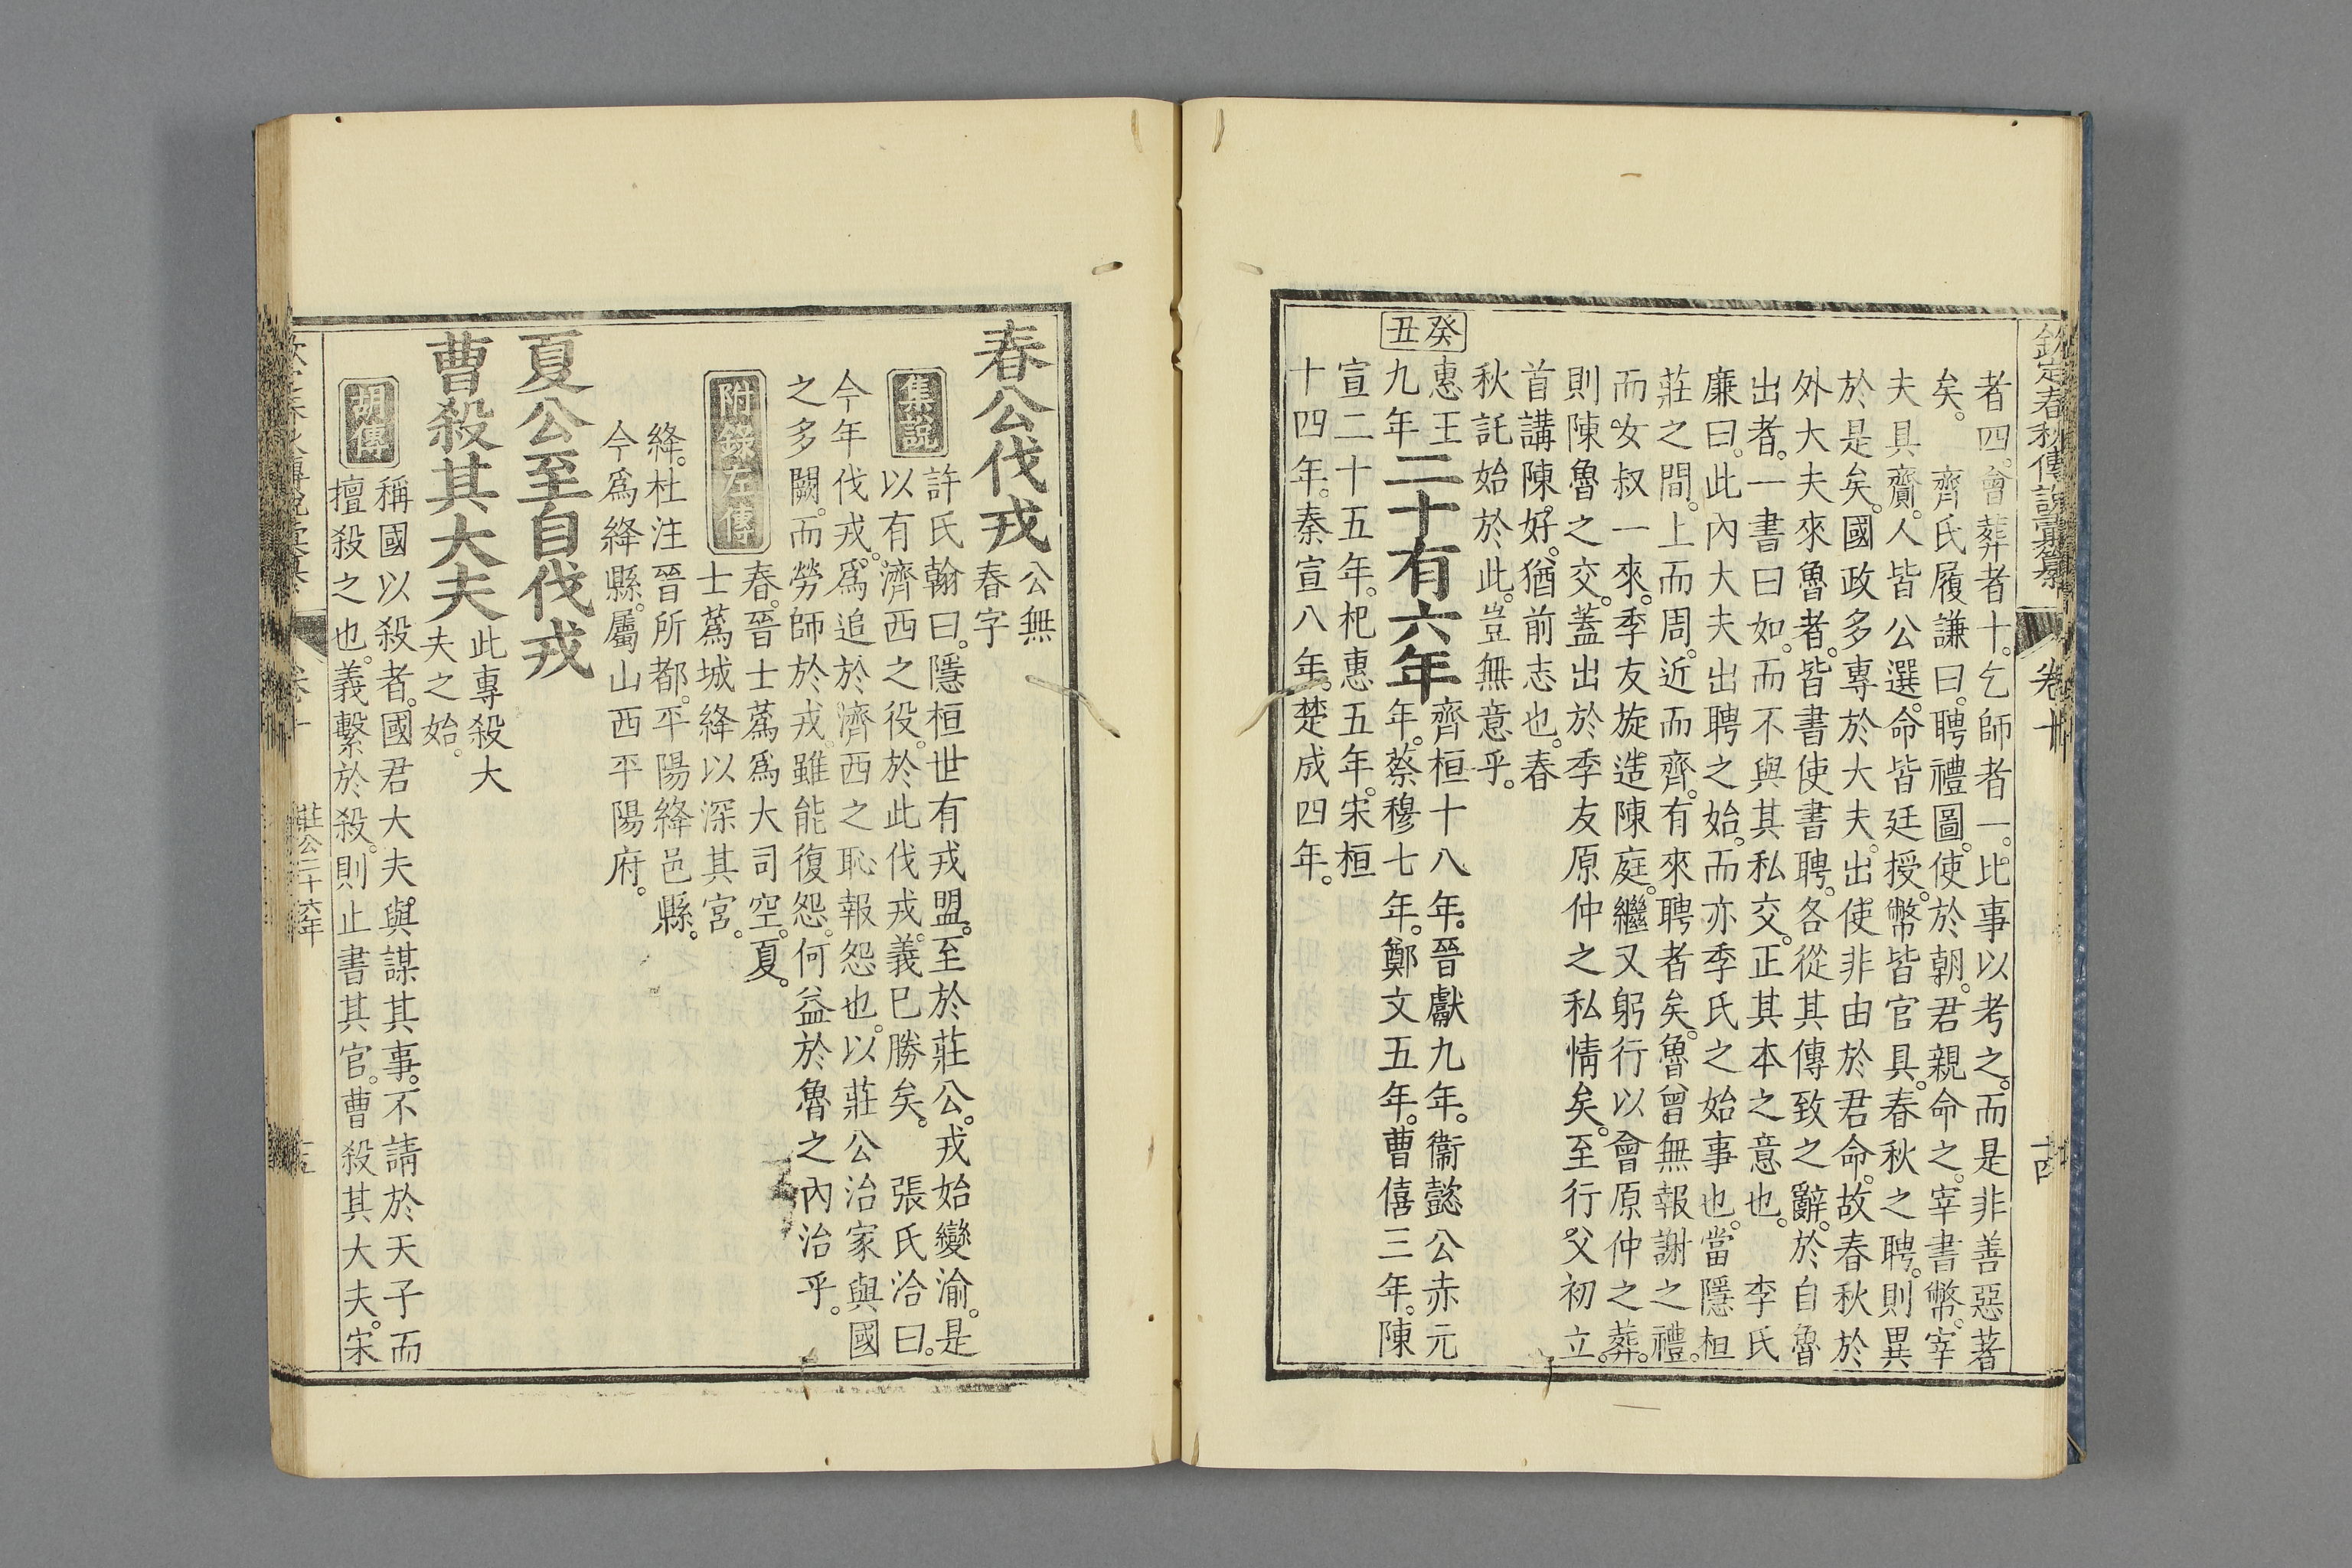 欽定春秋傳說彙纂
卷十
十四
者四。會葬者十。乞師者一。比事以考之。而是非善惡著
矣。齊氏履謙曰。聘禮圖。使於朝。君親命之。宰書幣。宰
夫具齎。人皆公選。命皆廷授。幣皆官具。春秋之聘。則異
於是矣。國政多專於大夫。出使非由於君命。故春秋於
外大夫來魯者。皆書使書聘。各從其傳致之辭。於自魯
出者。一書曰如。而不與其私交。正其本之意也。李氏
廉曰。此內大夫出聘之始。而亦季氏之始事也。當隱桓
莊之間。上而周。近而齊。有來聘者矣。魯曾無報謝之禮。
而女叔一來。季友旋造陳庭。繼又躬行以會原仲之葬。
則陳魯之交。蓋出於季友原仲之私情矣。至行父初立。
首講陳好。猶前志也。春
秋託始於此。豈無意乎。
癸丑
惠王九年二十有六年齊桓十八年。晉獻九年。衞懿公赤元
年。蔡穆七年。鄭文五年。曹僖三年。陳
宣二十五年。杞惠五年。宋桓
十四年。秦宣八年。楚成四年。
春公伐戎公無
春字
集說
許氏翰曰。隱桓世有戎盟。至於莊公。戎始變渝。是
以有濟西之役。於此伐戎。義已勝矣。張氏洽曰。
今年伐戎。爲追於濟西之恥報怨也。以莊公治家與國
之多闕。而勞師於戎。雖能復怨。何益於魯之內治乎。
附錄左傳
春。晉士蔿爲大司空。夏。
士蔿城絳以深其宮。
絳。杜注晉所都。平陽絳邑縣。
今爲絳縣。屬山西平陽府。
夏公至自伐戎
曹殺其大夫此專殺大
夫之始。
胡傳
稱國以殺者。國君大夫與謀其事。不請於天子而
擅殺之也。義繫於殺。則止書其官。曹殺其大夫。宋
卷十
莊公二十六年
十五